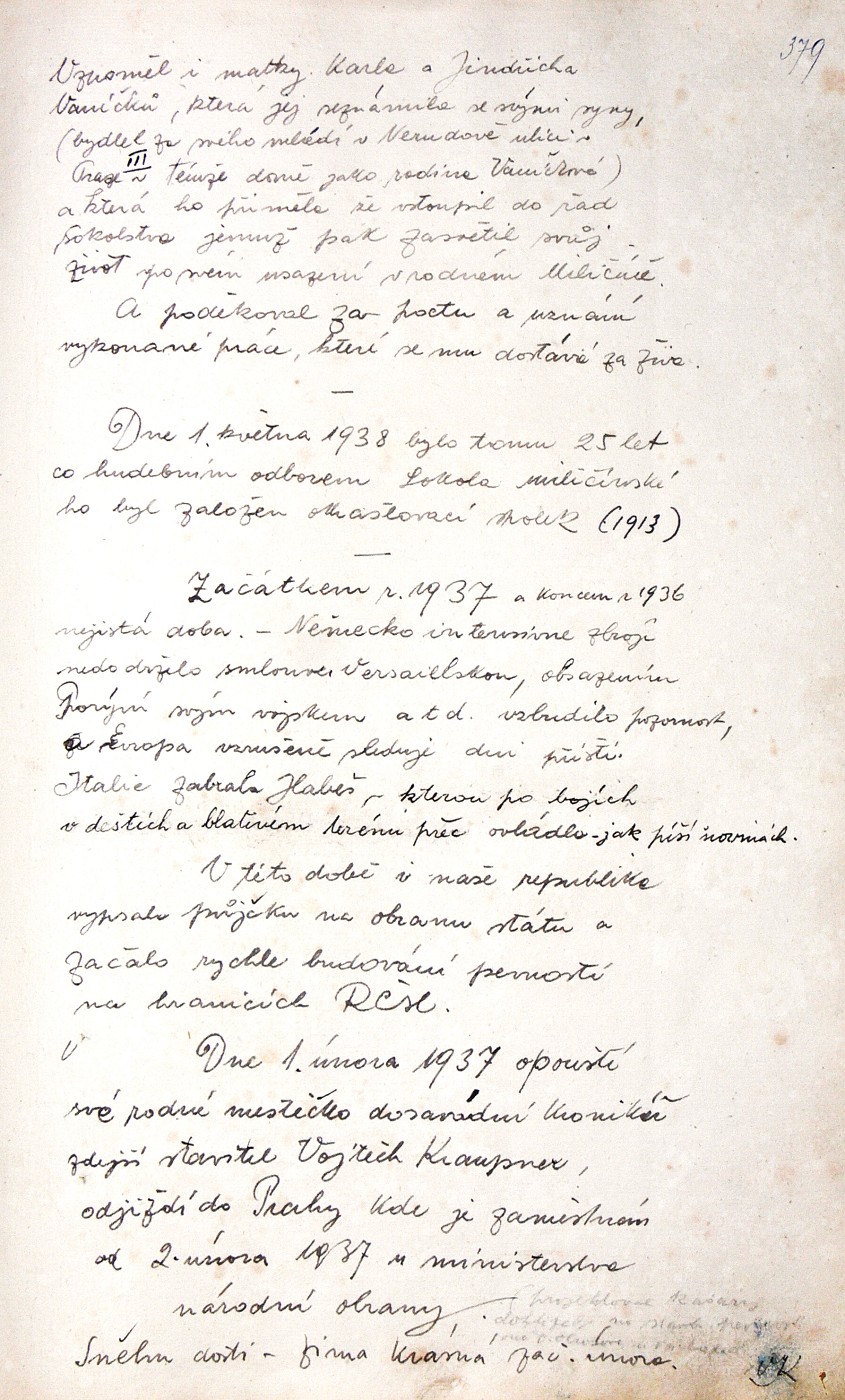 379
Vzpoměl i matky. Karla a Jindřicha
Vaníčků, která jej seznámila se svými syny,
(bydlel za svého mládí v Nerudově ulici v
Praze III v témže domě jako rodina Vaníčkova)
a která ho přiměla že vstoupil do řad
Sokolstva jemuž pak zasvětil svůj
život po svém usazení v rodném Miličíně.
A poděkoval za poctu a uznání
vykonané práce, které se mu dostává za živa.
—
Dne 1. května 1938 bylo tomu 25 let
co hudebním odborem Sokola miličínské
ho byl založen okrašlovací spolek (1913)
—
Začátkem r. 1937 a koncem r 1936
nejistá doba. – Německo intensivne zbrojí
nedodrželo smlouvu Versaillskou, obsazením
Porýní svým vojskem a t d. vzbudilo pozornost,
a Evropa vzrušeně sleduje dni příští.
Italie zabrala Habeš, – kterou po bojích
v deštích a blativém terénu přec ovládla – jak píší v novinách.
V této době i naše republika
vypsala půjčku na obranu státu a
začalo rychle budování pevností
na hranicích RČSl.
V
Dne 1. února 1937 opouští
své rodné mestečko dosavádní kronikář
zdejší stavitel Vojtěch Kraupner,
odjíždí do Prahy kde je zaměstnán
od 2. února 1937 u ministerstva
národní obrany,
Sněhu dosti – zima krásná zač. února.
VK